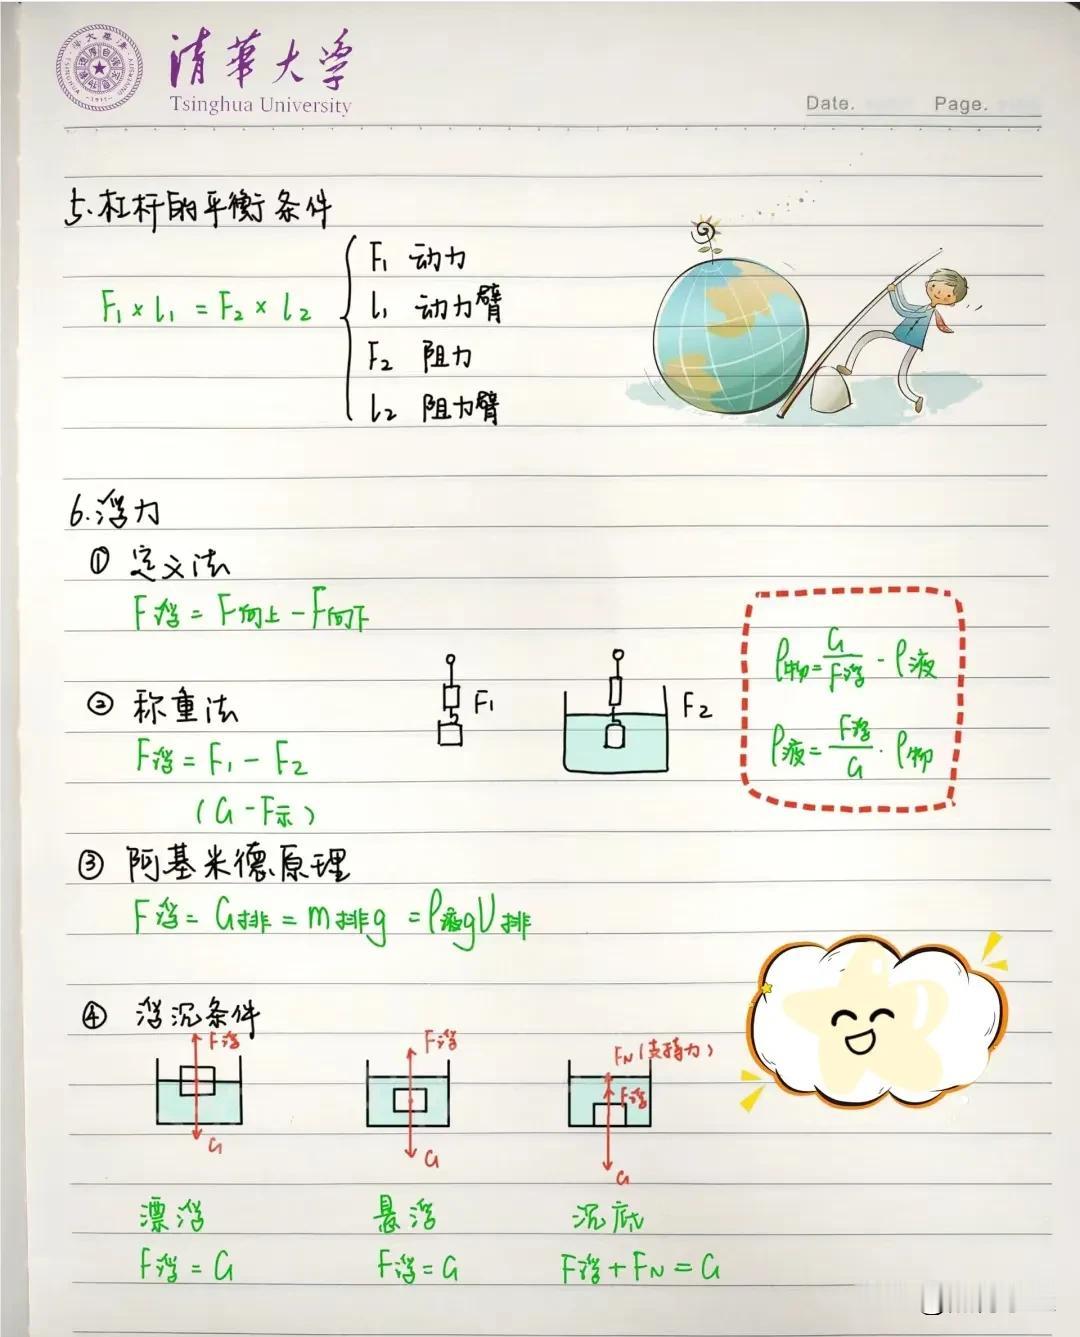 清華大学
Tsinghua University
Date. Page.
5.杠杆的平衡条件
F₁×l₁=F₂×l₂
F₁ 动力
l₁ 动力臂
F₂ 阻力
l₂ 阻力臂
6.浮力
① 定义法
F浮=F向上-F向下
② 称重法
F₁
F₂
F浮=F₁-F₂
(G-F示)
ρ物=G/F浮·ρ液
ρ液=F浮/G·ρ物
③ 阿基米德原理
F浮=G排=m排g=ρ液gV排
④ 浮沉条件
F浮
G
F浮
G
FN(支持力)
F浮
G
漂浮 悬浮 沉底
F浮=G F浮=G F浮+FN=G